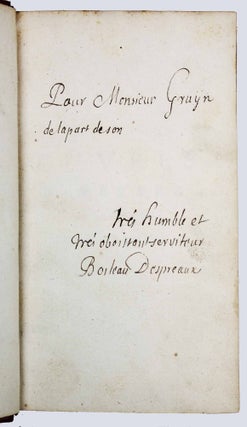 Pour Monsieur Gruÿn
de la part de son
trés humble et
trés obeissant serviteur
Boileau Despreaux